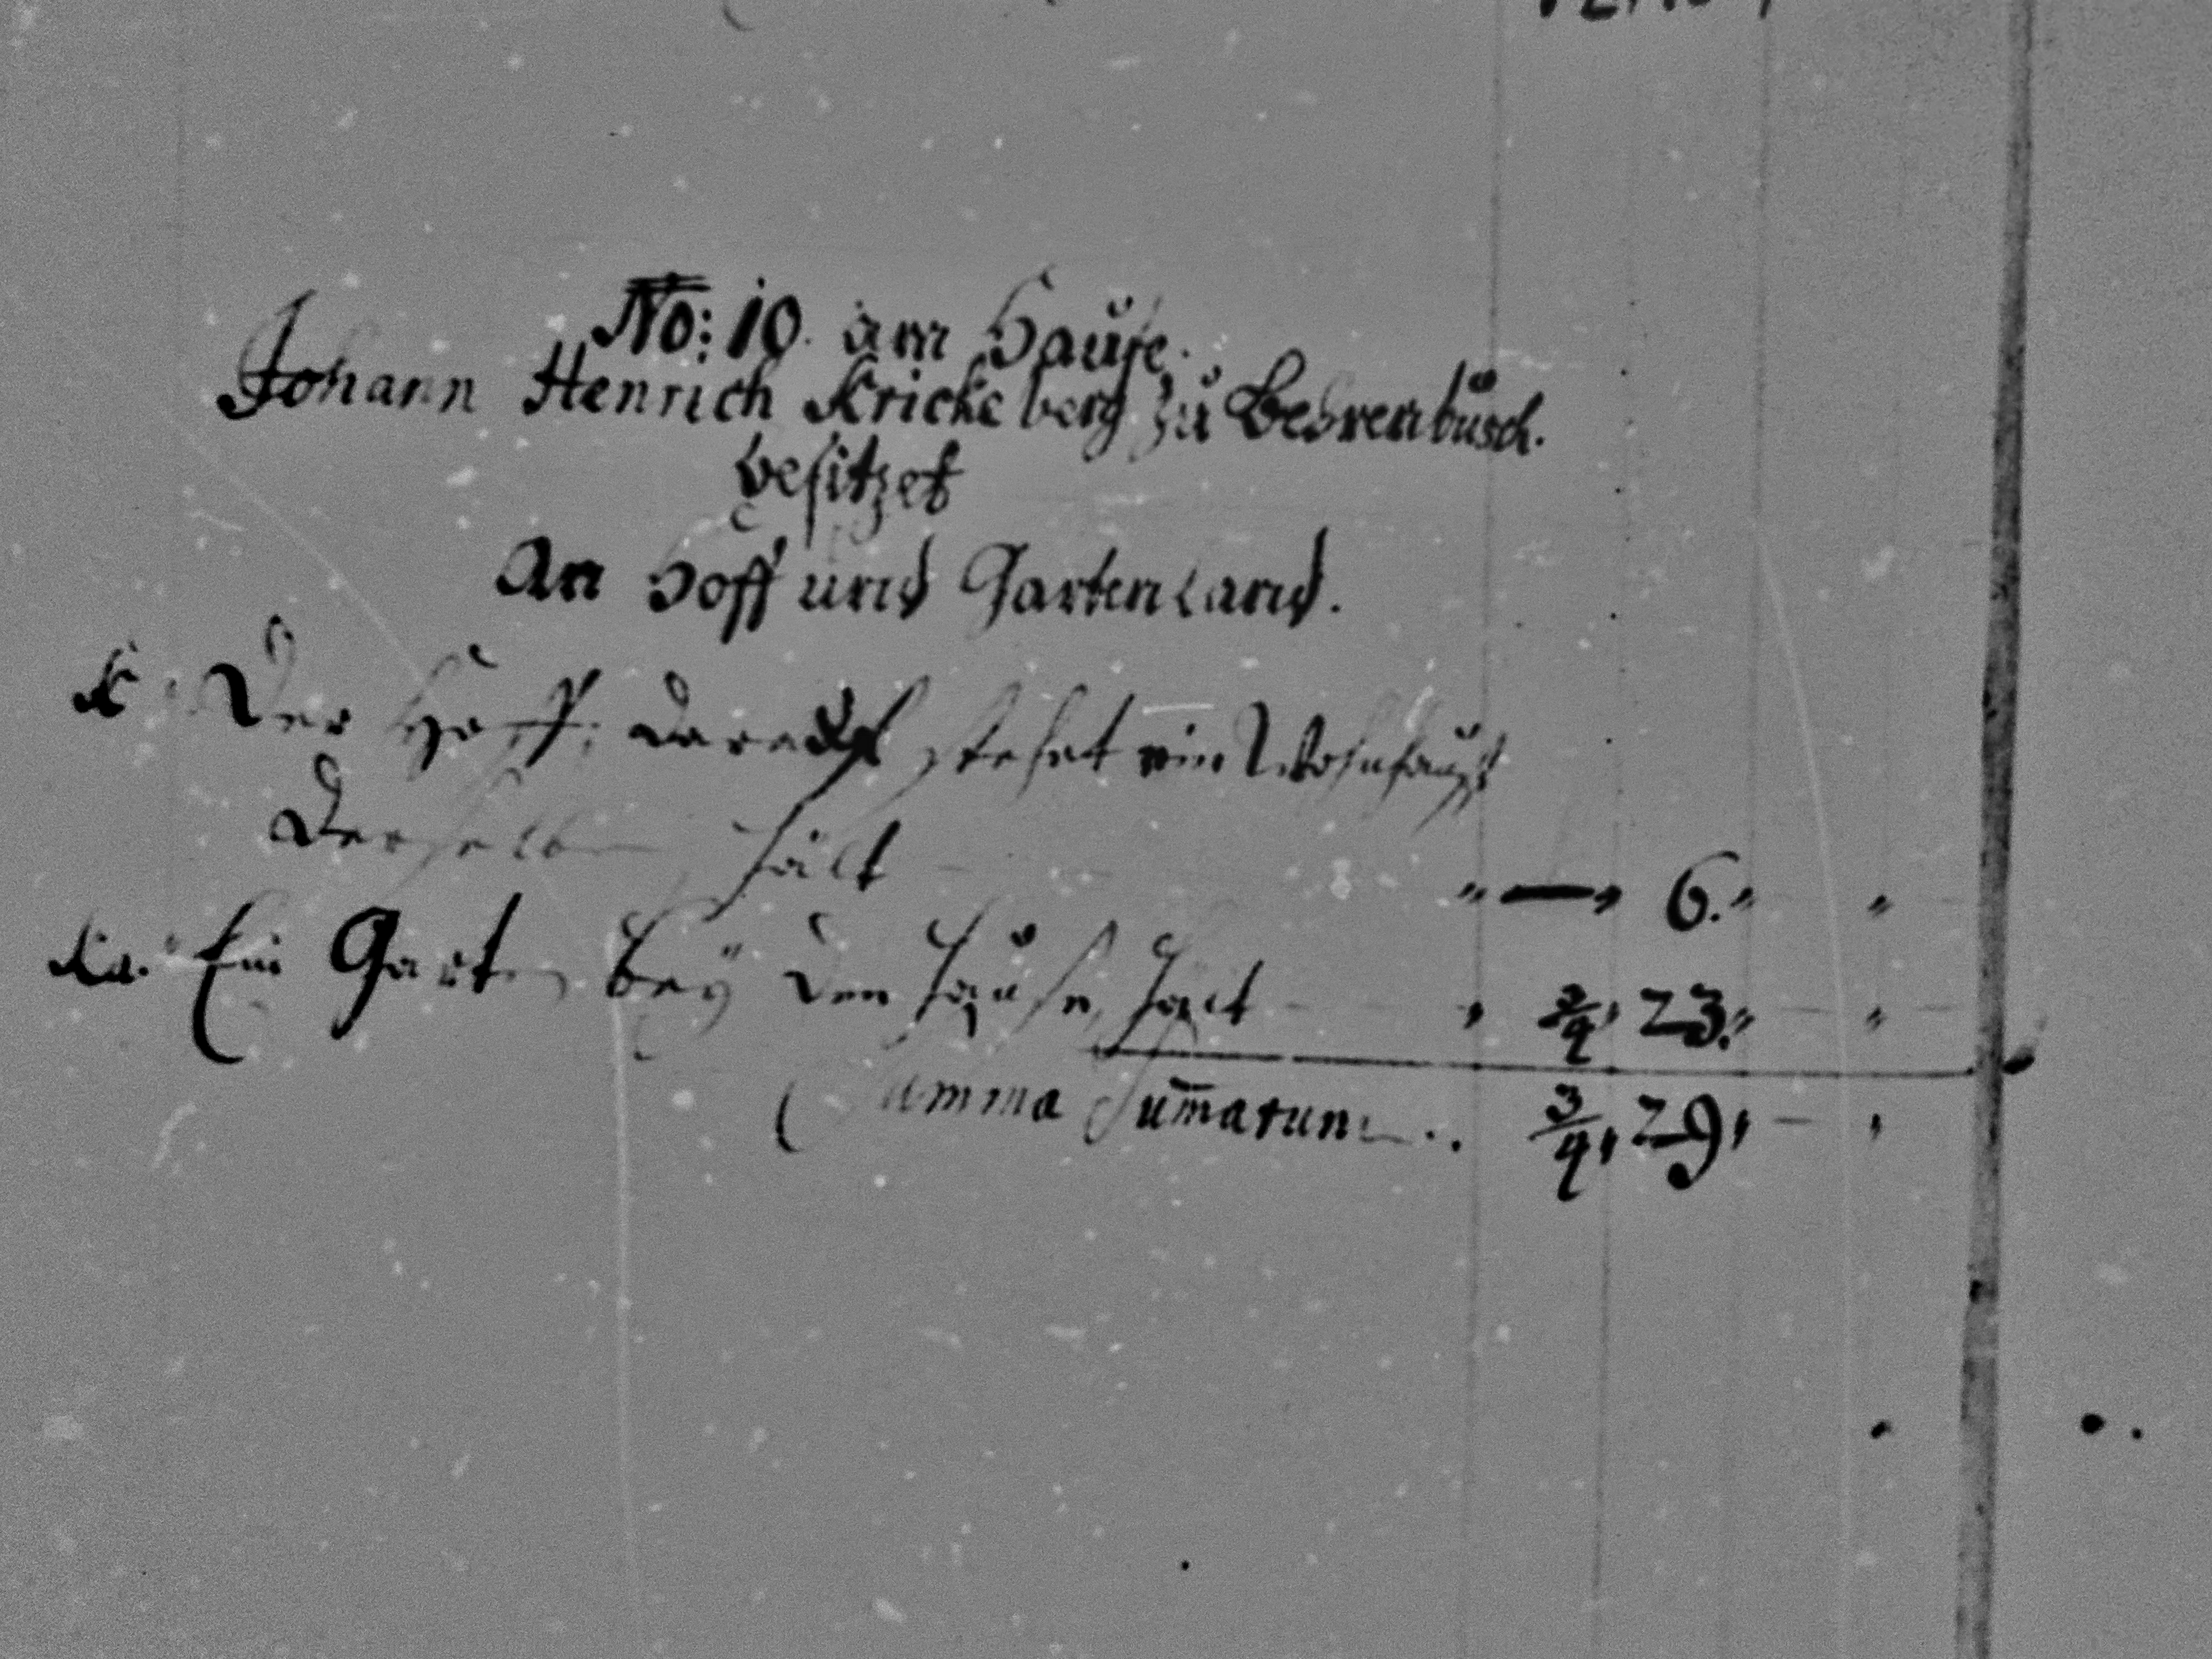 No: 10. am Hause.
Johann Henrich Kricke berg zu Behrenbusch.
besitzet
An Hoff und Gartenland.
K. Der Hoff, darauf stehet ein Wohnhauß
derselbe hält " — " 6. " "
Ka. Ein Garten bey dem Hause, hält " 3/4 " 23. " "
Summa Sum̄arum .. 3/4 " 29 " — "